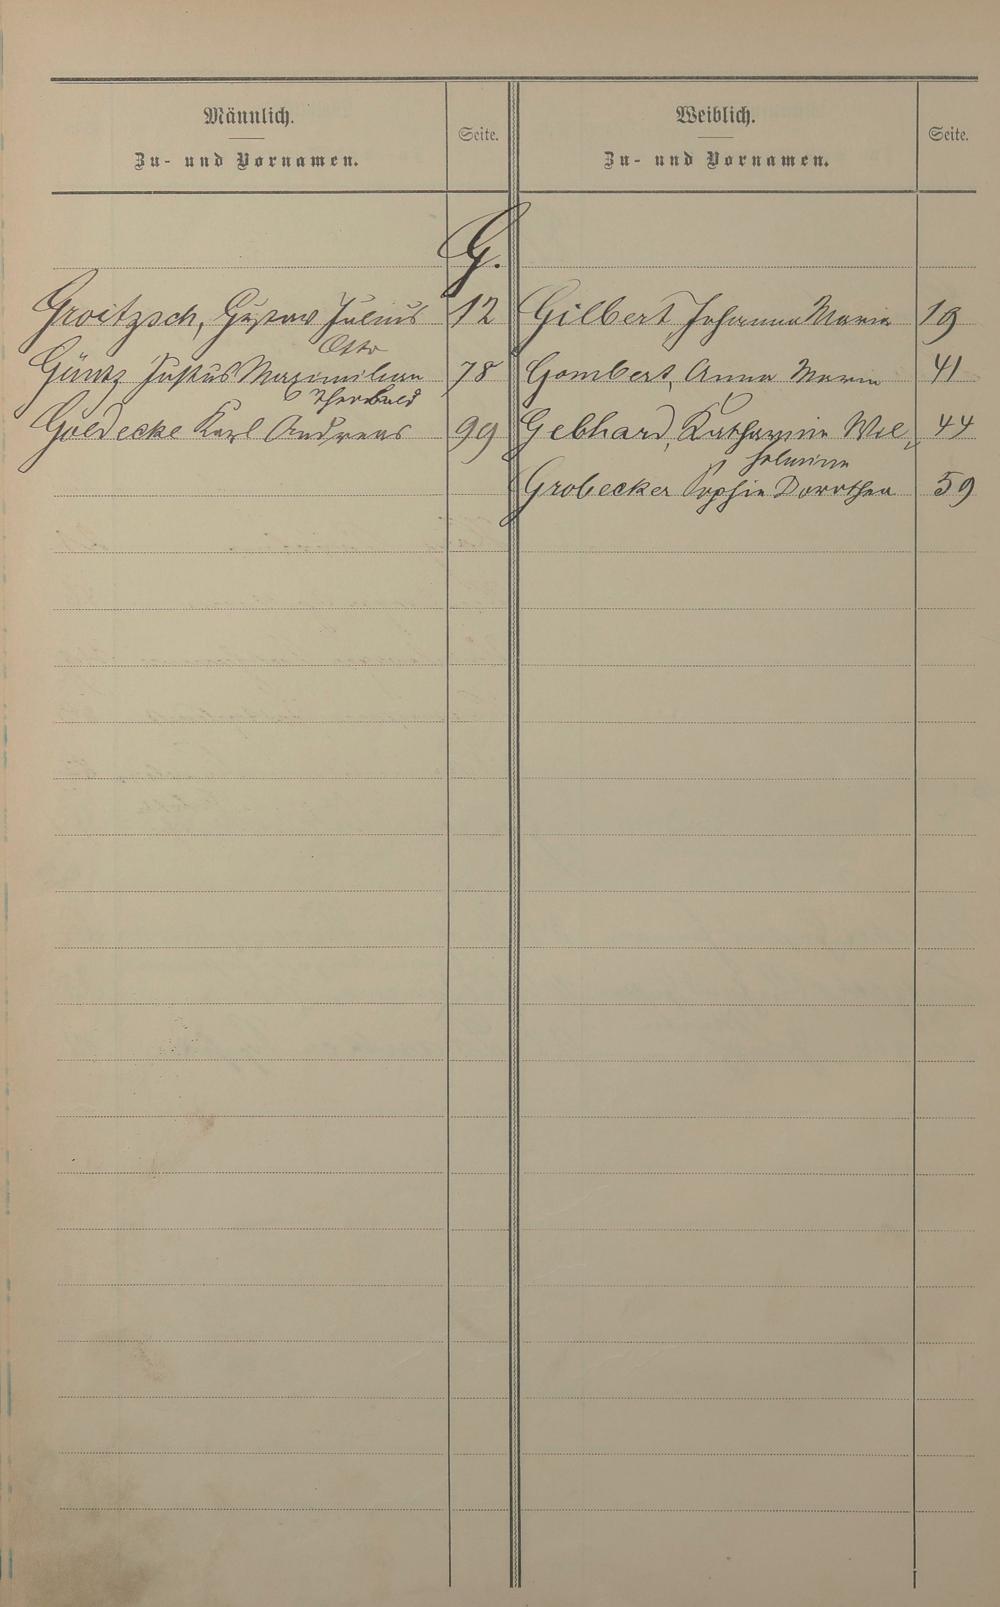 Männlich.
Zu- und Vornamen.
Seite.
Weiblich.
Zu- und Vornamen.
Seite.
G.
Groitzsch, Gustav Julius 12
Otto
Güntz Justus Maximilian 78
Theobald
Goedecke Karl Andreas 99
Gilbert, Johanna Maria 19
Gombert, Anna Maria 41
Gebhard, Katharina Wil- 44
helmine
Grobecker Sophie Dorothea 59